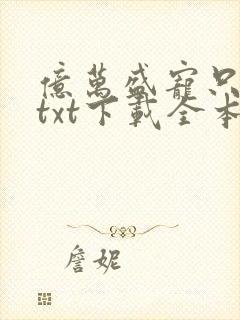 億萬盛寵只
txt下載全本
詹妮